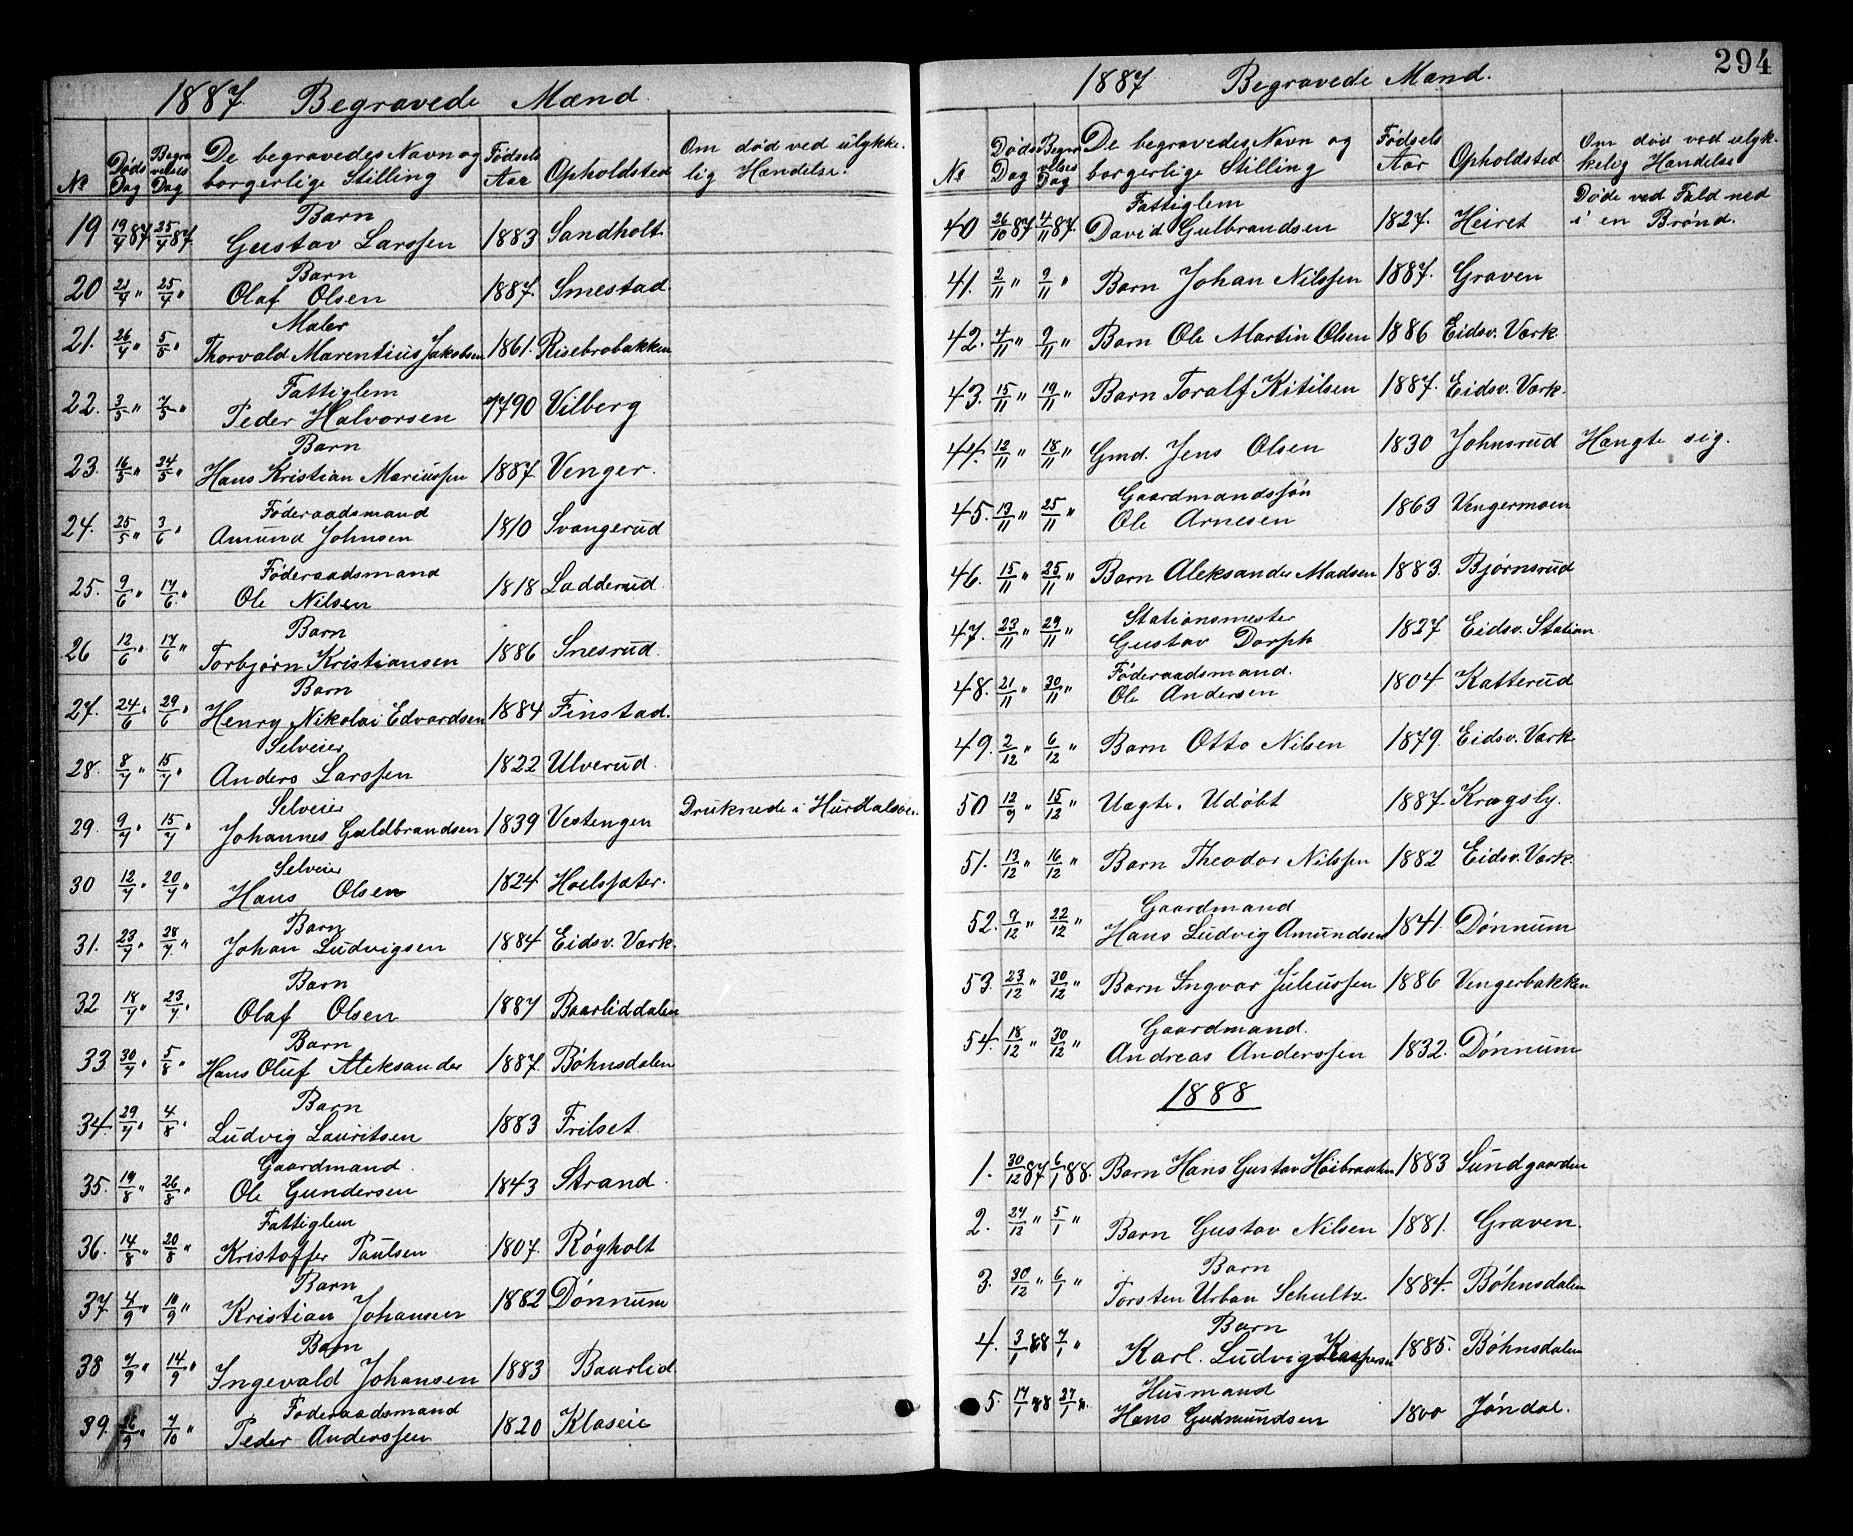 294
1887. Begravede Mænd.
№ Døds Dag Begravelses Dag De begravedes Navn og borgerlige Stilling Fødsels Aar Opholdsted Om død ved ulykkelig Hændelse.
19 19/4 87 25/4 87. Barn Gustav Larssen 1883 Sandholt
20 21/4 " 25/4 " Barn Olaf Olsen 1887. Smestad
21. 26/4 " 5/5 " Maler Thorvald Marentius Jakobsen 1861. Risebrobakken
22. 3/5 " 7/5 " Fattiglem Peder Halvorsen 1790 Vilberg
23. 16/5 " 24/5 " Barn Hans Kristian Mariussen 1887. Venger.
24. 25/5 " 3/6 " Føderaadsmand Amund Johnsen 1810 Svangerud
25. 9/6 " 17/6 " Føderaadsmand Ole Nilsen 1818 Ladderud.
26 12/6 " 17/6 " Barn Torbjørn Kristiansen 1886 Snesrud.
27. 24/6 " 29/6 " Barn Henry Nikolai Edvardsen 1884 Finstad.
28. 8/7 " 15/7 " Selveier Anders Larssen 1822 Ulverud.
29. 9/7 " 15/7 " Selveier Johannes Guldbrandsen 1839 Vestengen Druknede i Hurdalsøen
30 12/7 " 20/7 " Selveier Hans Olsen 1824 Hoelsæter.
31. 23/7 " 28/7 " Barn Johan Ludvigsen 1884 Eidsv. Værk.
32 18/7 " 23/7 " Barn Olaf Olsen 1887 Baarliddalen
33 30/7 " 5/8 " Barn Hans Oluf Aleksander 1887. Bøhnsdalen
34. 29/7 " 4/8 " Barn Ludvig Lauritsen 1883 Frilset.
35. 19/8 " 26/8 " Gaardmand. Ole Gundersen 1843 Strand.
36. 14/8 " 20/8 " Fattiglem Kristoffer Paulsen 1807. Røgholt
37. 4/9 " 10/9 " Barn Kristian Johansen 1882 Dønnum
38 7/9 " 14/9 " Barn Ingevald Johansen 1883 Baarlid
39. 26/9 " 7/10 " Føderaadsmand Peder Anderssen 1820 Klaseie
1887 Begravede Mænd.
№ Døds Dag Begravelses Dag De begravedes Navn og borgerlige Stilling Fødsels Aar Opholdsted Om død ved ulykkelig Hændelse
40 26/10 87 4/11 87. Fattiglem David Gulbrandsen 1827. Heiret Døde ved Fald ned i en Brønd.
41. 2/11 " 9/11 " Barn Johan Nilssen 1887. Graven
42. 4/11 " 9/11 " Barn Ole Martin Olsen 1886 Eidsv. Værk
43. 15/11 " 19/11 " Barn Toralf Kitilsen 1887. Eidsv. Værk.
44. 12/11 " 18/11 " Gmd. Jens Olsen 1830 Johnsrud Hængte sig.
45. 13/11 " 25/11 " Gaardmandssøn Ole Arnesen 1863 Vengermoen
46. 15/11 " 25/11 " Barn Aleksander Madsen 1883. Bjørnsrud
47. 23/11 " 29/11 " Stationsmester Gustav Dorph 1827 Eidsv. Station
48. 21/11 " 30/11 " Føderaadsmand. Ole Andersen 1804 Katterud
49. 2/12 " 6/12 " Barn Otto Nilsen 1879. Eidsv. Værk
50 12/9 " 15/12 " Uægte, Udøbt 1887. Kragsby.
51. 13/12 " 16/12 " Barn Theodor Nilssen 1882 Eidsv. Værk
52. 9/12 " 22/12 " Gaardmand Hans Ludvig Amundsen 1841. Dønnum
53. 23/12 " 30/12 " Barn Ingvar Juliussen 1886 Vengerbakken
54. 18/12 " 30/12 " Gaardmand. Andreas Anderssen 1832. Dønnum
1888
1. 30/12 87 6/1 88. Barn Hans Gustav Høibraaten 1883 Sundgaarden
2. 27/12 " 5/1 " Barn Gustav Nilsen 1881. Graven.
3. 30/12 " 6/1 " Barn Torsten Urban Schultz 1884. Bøhnsdalen
4. 3/1 88 7/1 " Barn Karl. Ludvig Kaspersen 1885. Bøhnsdalen
5. 17/1 88 27/1 ". Husmand Hans Gudmundsen 1800 Jøndal.